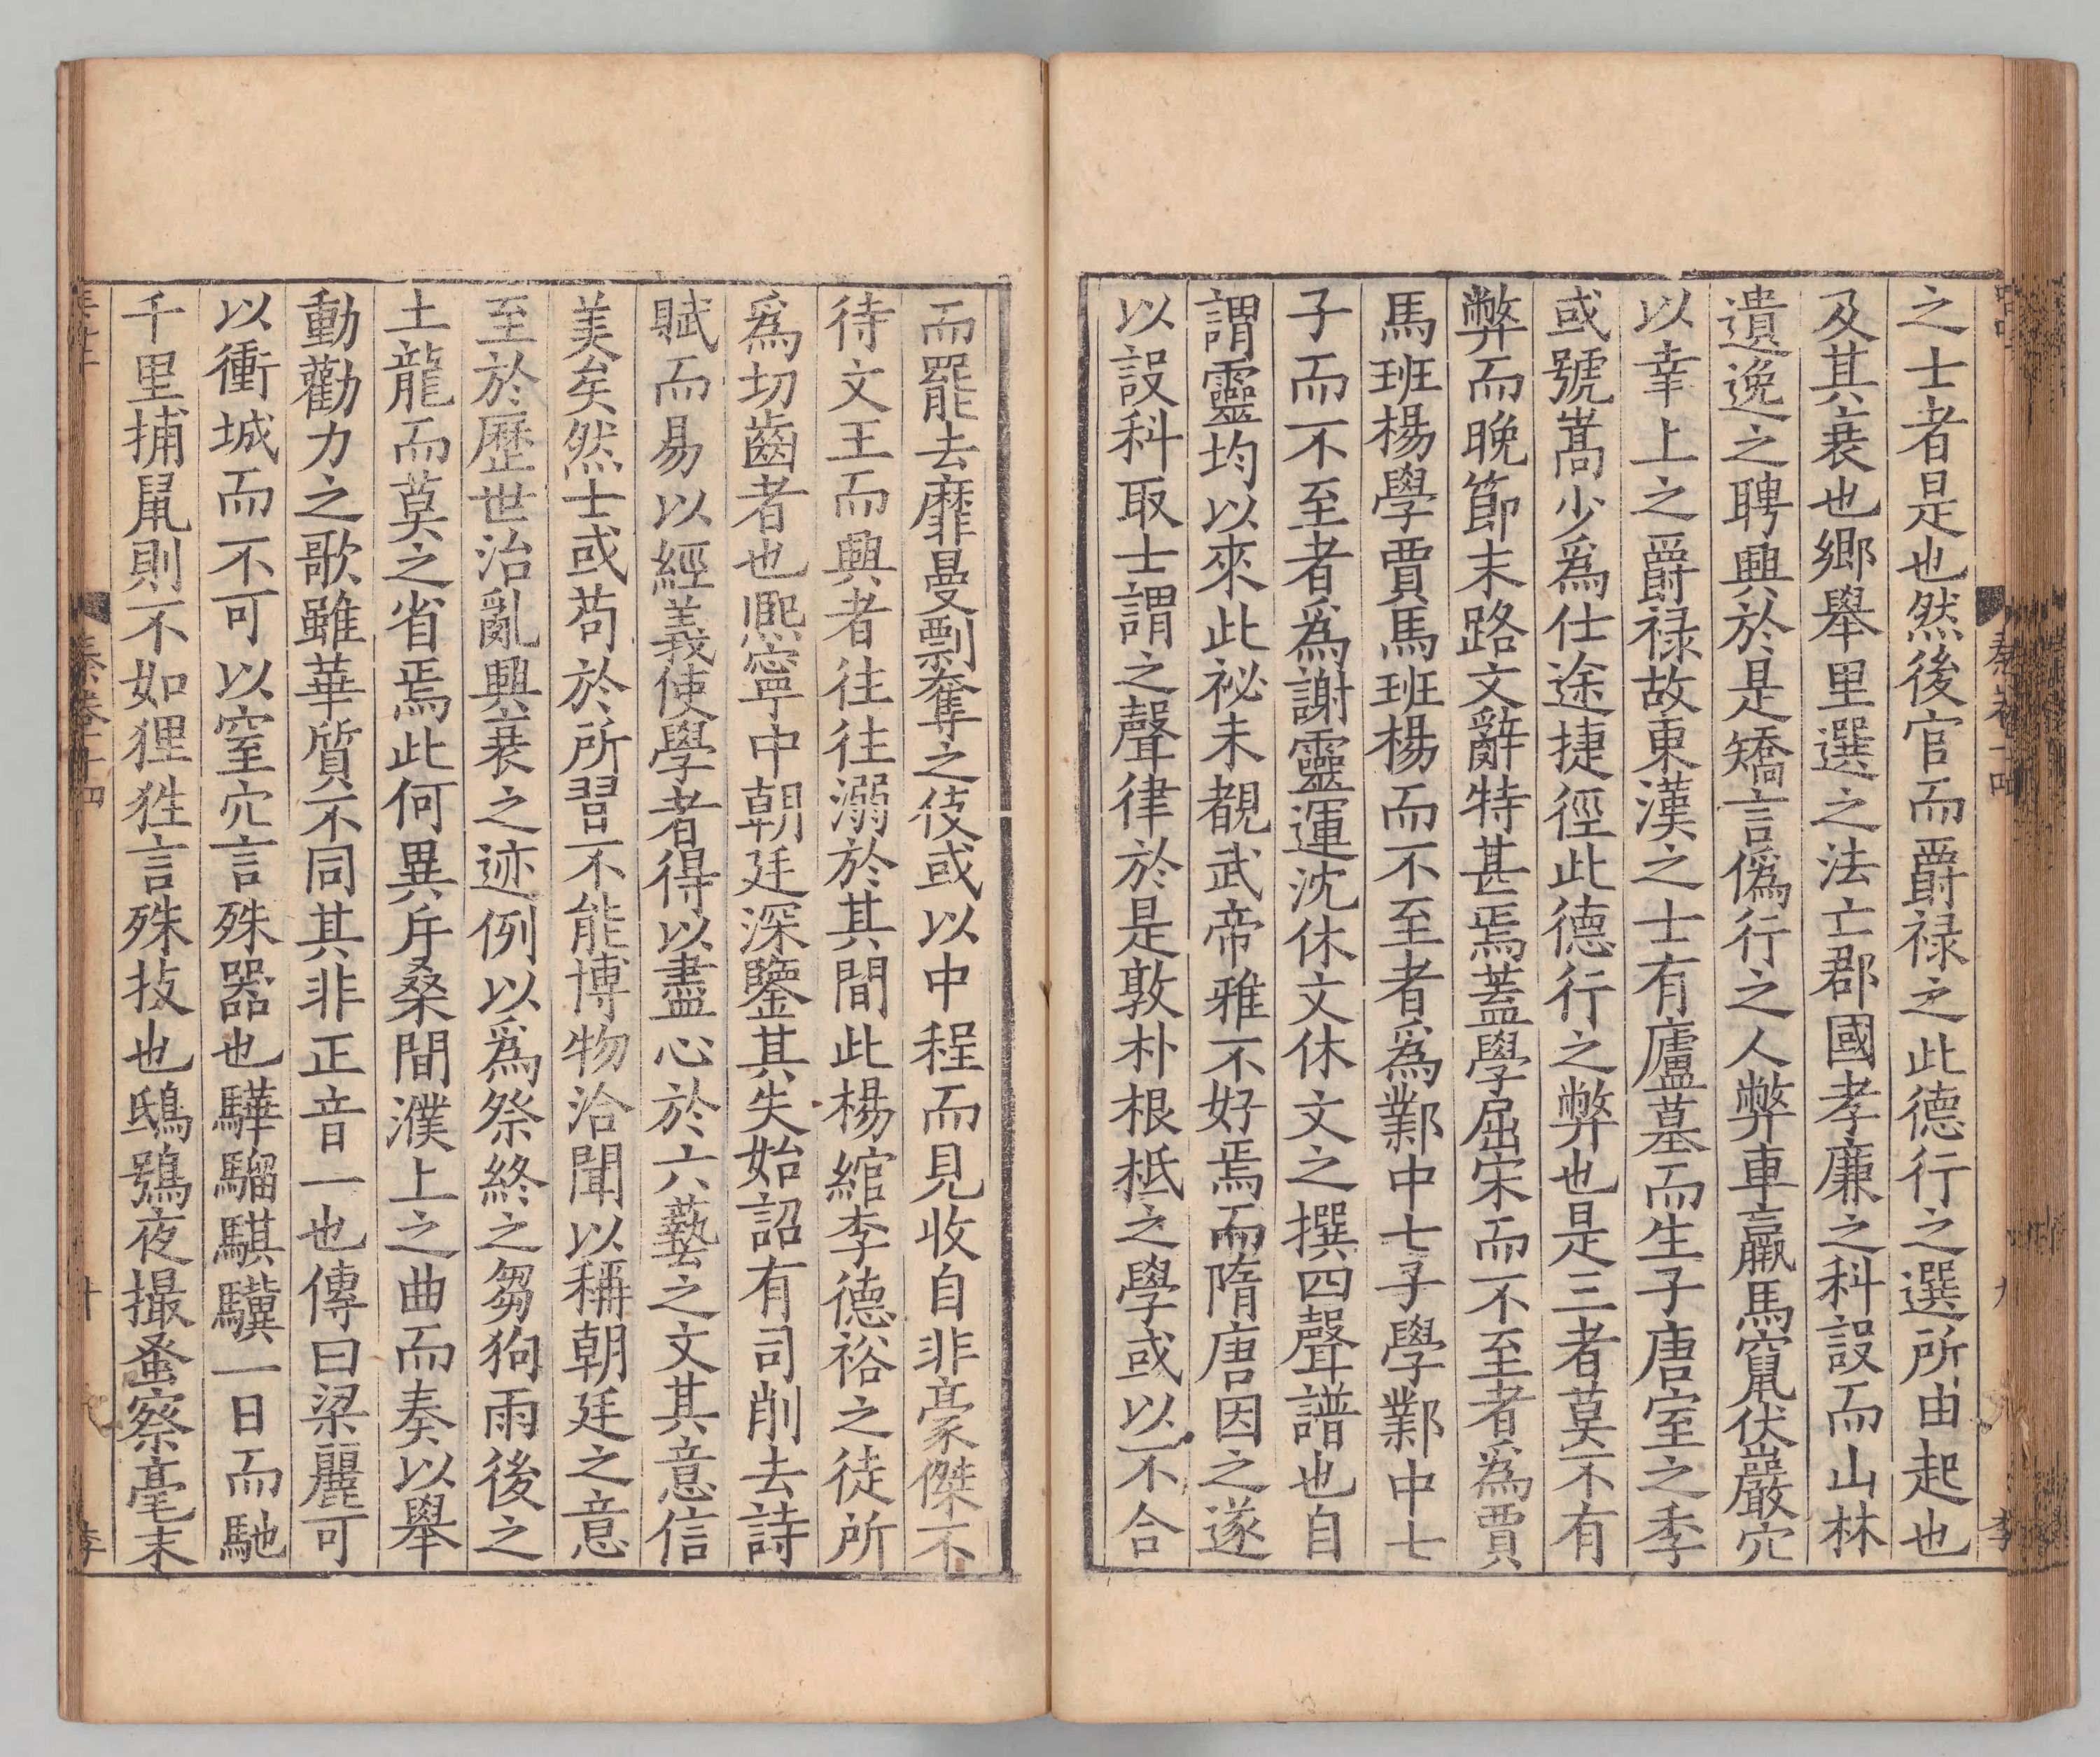 之士者是也然後官而爵禄之此德行之選所由起也
及其衰也郷舉里選之法亡郡國孝廉之科設而山林
遺逸之聘興於是矯言僞行之人弊車羸馬竄伏巖穴
以幸上之爵禄故東漢之士有廬墓而生子唐室之季
或號嵩少爲仕途捷徑此德行之弊也是三者莫不有
弊而晚節末路文辭特甚焉蓋學屈宋而不至者爲賈
馬班楊學賈馬班楊而不至者爲鄴中七子學鄴中七
子而不至者爲謝靈運沈休文休文之撰四聲譜也自
謂靈均以來此祕未覩武帝雅不好焉而隋唐因之遂
以設科取士謂之聲律於是敦朴根柢之學或以不合
而罷去靡曼剽奪之伎或以中程而見收自非豪傑不
待文王而興者往往溺於其間此楊綰李德裕之徒所
爲切齒者也熈寧中朝廷深鑒其失始詔有司削去詩
賦而易以經義使學者得以盡心於六藝之文其意信
美矣然士或苟於所習不能博物洽聞以稱朝廷之意
至於歷世治亂興衰之迹例以爲祭終之芻狗雨後之
土龍而莫之省焉此何異斥桑間濮上之曲而奏以舉
動勸力之歌雖華質不同其非正音一也傳曰梁麗可
以衝城而不可以窒穴言殊器也驊騮騏驥一日而馳
千里捕鼠則不如狸狌言殊技也鴟鵂夜撮蚤察毫末
秦卷十四
十
李